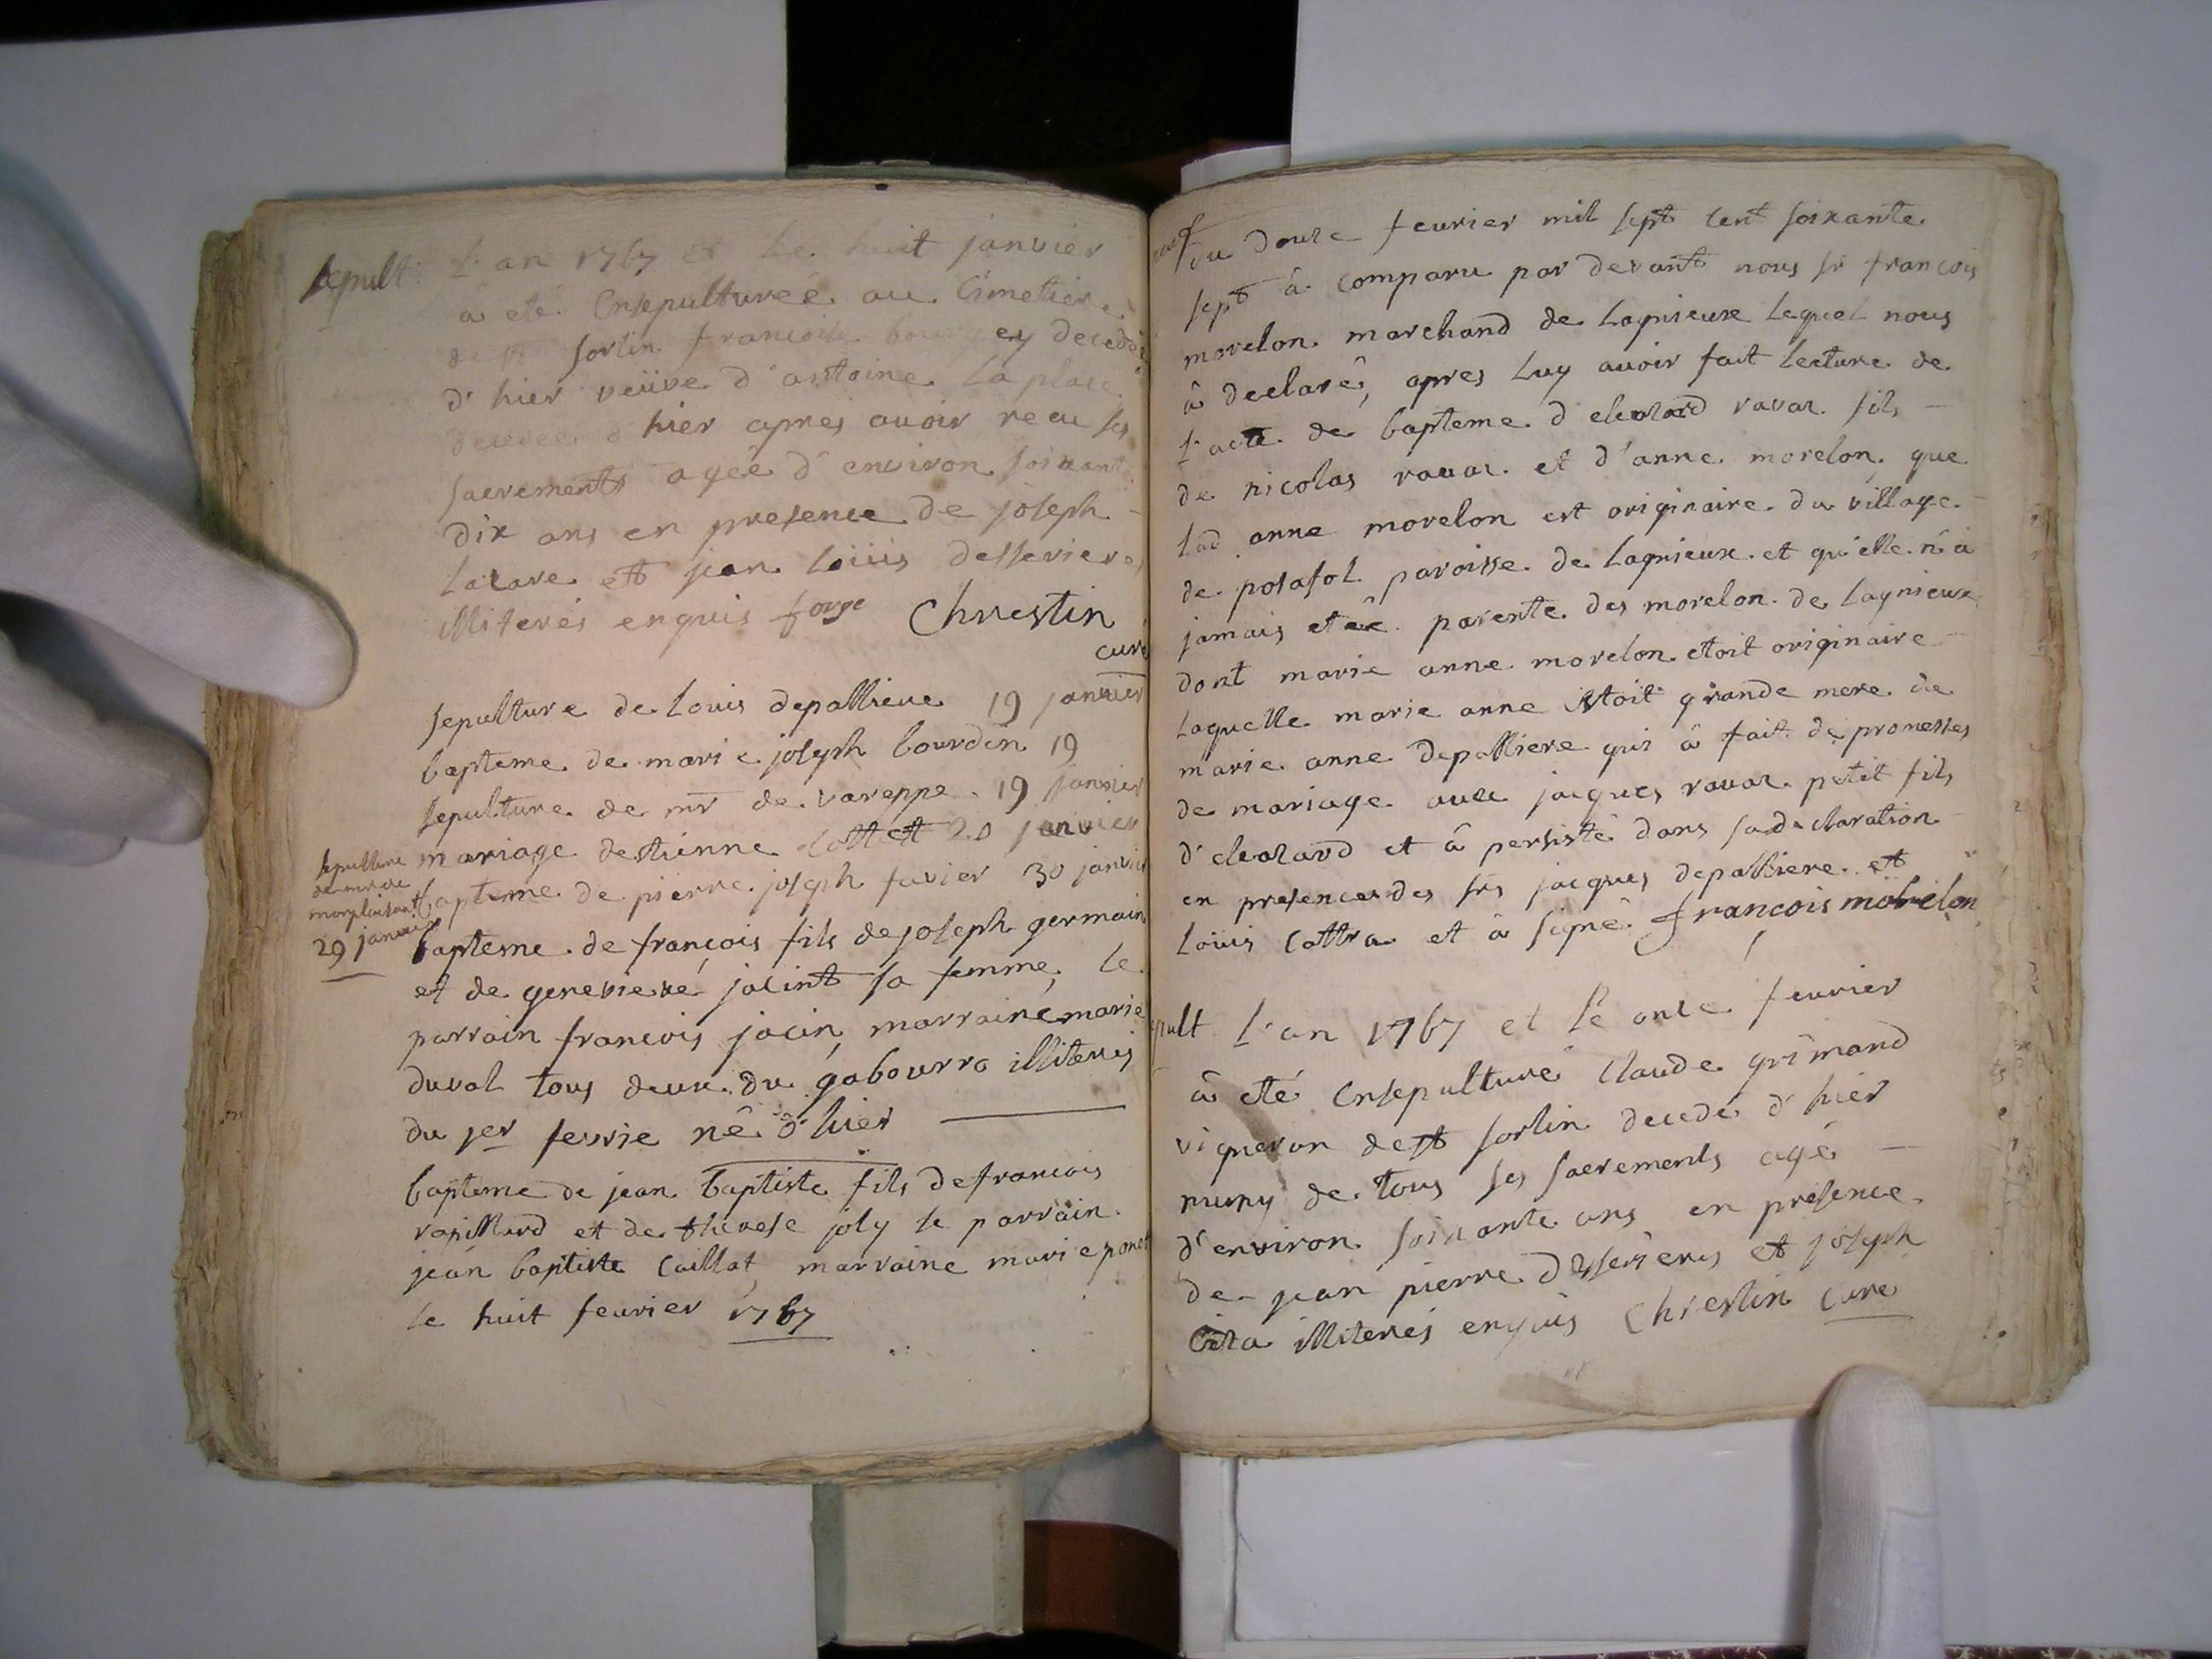 sepult.
L'an 1767 et le huit janvier
a eté ensepulturée au cimetiere
de st sorlin francoise decedée
d'hier veüve d'antoine la place
decedée d'hier apres avoir recu ses
sacrements agée d'environ soixante
dix ans en presence de joseph
lazare et jean loüis desserieres
illiterés enquis forge Chrestin
curé
sepulture de louis depalliere 19 janvier
bapteme de marie joseph bourdin 19
sepulture de mr de vareppe 19 janvier
mariage destienne cottet 20 janvier
sepulture
de mr de
morplaisant
29 janvier
bapteme de pierre joseph favier 30 janvier
bapteme de françois fils de joseph germain
et de genevieve jacint sa femme, le
parrain francois jacin, marraine marie
duval tous deux du gabourra illiterés
du jer fevrie né d'hier
bapteme de jean baptiste fils de francois
rapillard et de therese joly le parrain
jean baptiste caillat, marraine marie ponet
le huit fevrier 1767
du douze fevrier mil sept cent soixante
sept à comparu par devant nous sr francois
morelon marchand de lagnieux lequel nous
à declaré, apres luy avoir fait lecture de
l'acte de bapteme d'eleazard ravaz fils
de nicolas ravaz et d'anne morelon que
lad anne morelon est originaire du village
de posafol paroisse de lagnieux et qu'elle n'a
jamais eté parente des morelon de lagnieux
dont marie anne morelon etoit originaire
laquelle marie anne etoit grande mere de
marie anne depalliere qui à fait de promesses
de mariage avec jacques ravaz petit fils
d'eleazard et à persisté dans sa declaration
en presence des srs jacques depalliere et
loüis cottra et à signé francois morelon
sepult
L'an 1767 et le onze fevrier
à eté ensepulturé claude grimand
vigneron de st sorlin decedé d'hier
muny de tous ses sacrements agé
d'environ soixante ans en presence
de jean pierre desserieres et joseph
illiterés enquis Chrestin curé